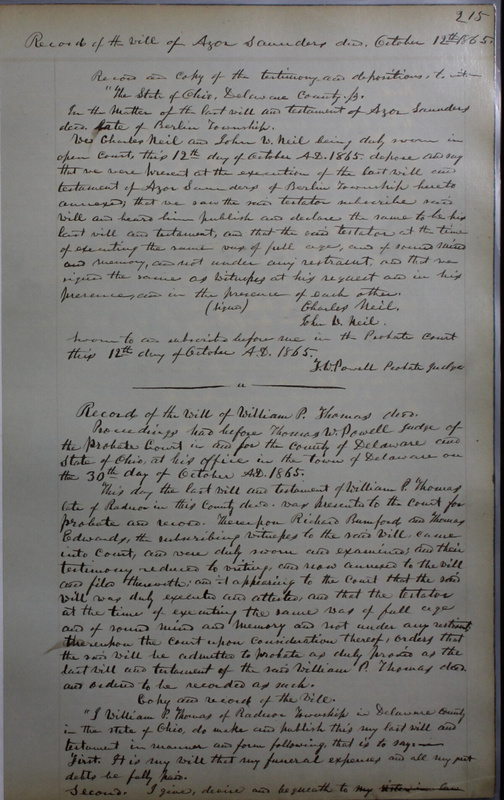 215
Record of the Will of Azor Saunders decd. October 12th 1865.
Record and Copy of the testimony and depositions, to wit:
"The State of Ohio, Delaware County. ss.
In the Matter of the last will and testament of Azor Saunders
decd. late of Berlin Township.
We Charles Neil and John W. Neil being duly sworn in
open Court, this 12th day of October A.D. 1865. depose and say
that we were present at the execution of the last will and
testament of Azor Saunders of Berlin Township hereto
annexed; that we saw the said testator subscribe said
will and heard him publish and declare the same to be his
last will and testament, and that the said testator at the time
of executing the same was of full age, and of sound mind
and memory, and not under any restraint, and that we
signed the same as witnesses at his request and in his
presence, and in the presence of each other.
(Signed) Charles Neil.
John W. Neil.
Sworn to and subscribed before me in the Probate Court
this 12th day of October A.D. 1865.
T. W. Powell Probate Judge
Record of the Will of William P. Thomas decd.
Proceedings had before Thomas W. Powell Judge of
the Probate Court in and for the County of Delaware and
State of Ohio, at his office in the town of Delaware on
the 30th day of October A.D. 1865.
This day the last will and testament of William P. Thomas
late of Radnor in this County decd. was presented to the Court for
probate and record. Thereupon Richard Bumford and Thomas
Edwards, the subscribing witnesses to the said Will, came
into Court, and were duly sworn and examined; and their
testimony reduced to writing and now annexed to the will
and filed therewith: and it appearing to the Court that the said
will was duly executed and attested, and that the testator
at the time of executing the same was of full age
and of sound mind and memory and not under any restraint
thereupon the Court upon consideration thereof, orders that
the said will be admitted to probate as duly proved as the
last will and testament of the said William P. Thomas decd.
and ordered to be recorded as such.
Copy and record of the Will.
"I William P. Thomas of Radnor Township in Delaware County
in the State of Ohio, do make and publish this my last will and
testament in manner and form following, that is to say:—
First. It is my will that my funeral expenses and all my just
debts be fully paid.
Second. I give, devise and bequeath to my